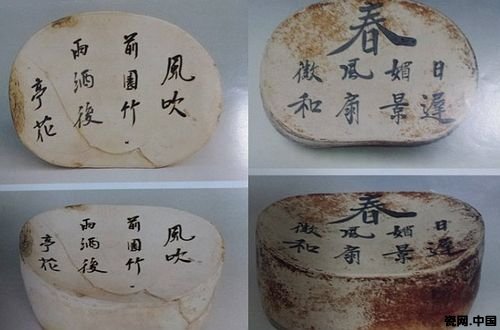 風吹
前園竹
雨洒後
亭花
春
日遲
媚景
風扇
微和
風吹
前園竹
雨洒後
亭花
春
日遲
媚景
風扇
微和
瓷网.中国